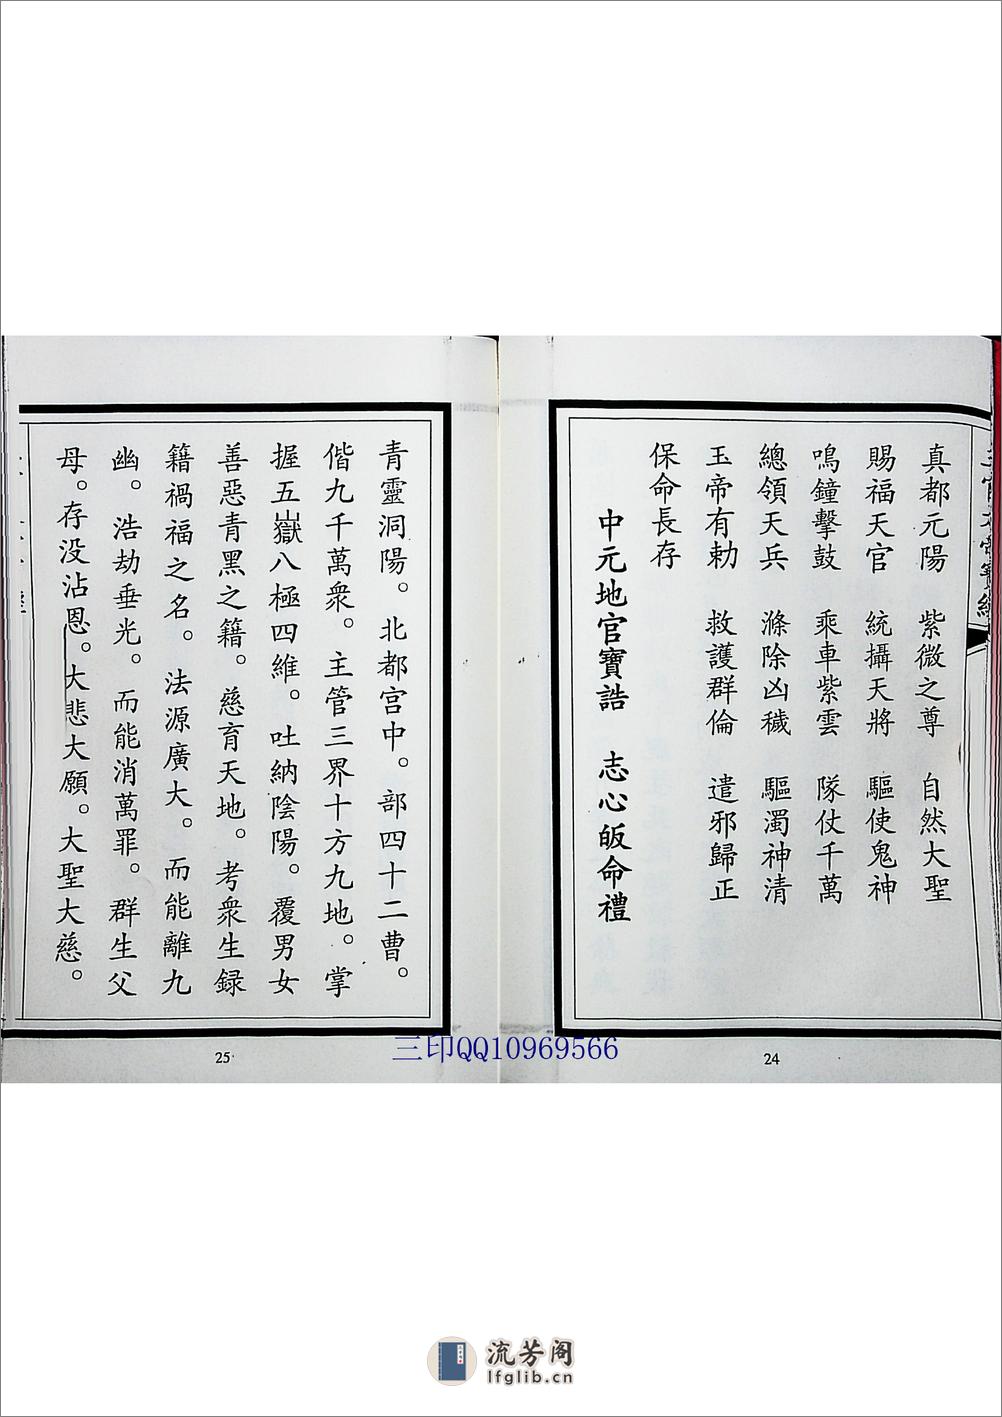 真都元陽　紫微之尊　自然大聖
賜福天官　統攝天將　驅使鬼神
鳴鐘擊鼓　乘車紫雲　隊仗千萬
總領天兵　滌除凶穢　驅濁神清
玉帝有勅　救護群倫　遣邪歸正
保命長存
中元地官寶誥　志心皈命禮
24
青靈洞陽。北都宮中。部四十二曹。
偕九千萬衆。主管三界十方九地。掌
握五嶽八極四維。吐納陰陽。覆男女
善惡青黑之籍。慈育天地。考衆生録
籍禍福之名。法源廣大。而能離九
幽。浩劫垂光。而能消萬罪。群生父
母。存没沾恩。大悲大願。大聖大慈。
25
三印QQ10969566
流芳阁
lfglib.cn